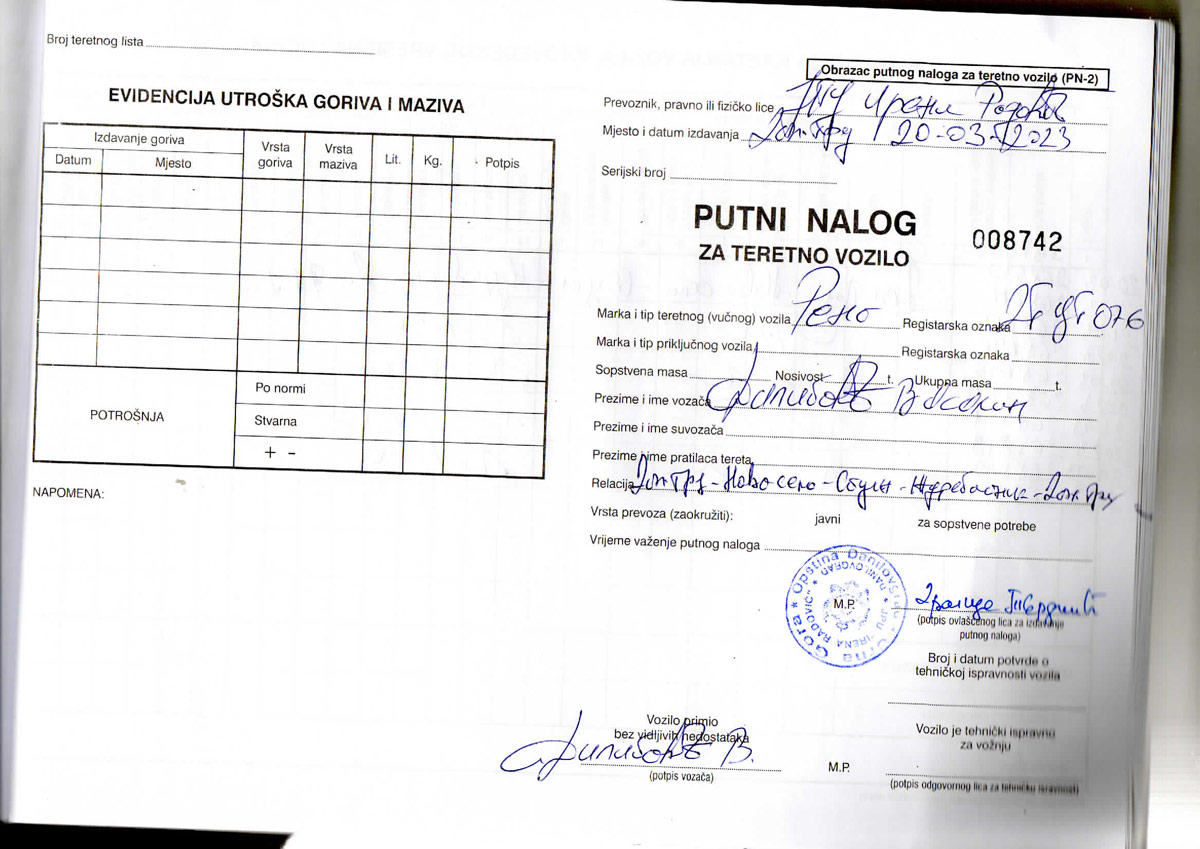 Broj teretnog lista
EVIDENCIJA UTROŠKA GORIVA I MAZIVA
Izdavanje goriva
Datum
Mjesto
Vrsta goriva
Vrsta maziva
Lit.
Kg.
Potpis
POTROŠNJA
Po normi
Stvarna
+ -
NAPOMENA:
Obrazac putnog naloga za teretno vozilo (PN-2)
Prevoznik, pravno ili fizičko lice
Mjesto i datum izdavanja 20-03-2023
Serijski broj
PUTNI NALOG
008742
ZA TERETNO VOZILO
Marka i tip teretnog (vučnog) vozila Рено Registarska oznaka
Marka i tip priključnog vozila Registarska oznaka
Sopstvena masa Nosivost t. Ukupna masa t.
Prezime i ime vozača
Prezime i ime suvozača
Prezime i ime pratilaca tereta
Relacija
Vrsta prevoza (zaokružiti): javni za sopstvene potrebe
Vrijeme važenje putnog naloga
Crna Gora * Opština Danilovgrad
JPU "IRENA RADOVIĆ" * DANILOVGRAD
M.P.
(potpis ovlašćenog lica za izdavanje
putnog naloga)
Broj i datum potvrde o
tehničkoj ispravnosti vozila
Vozilo primio
bez vidljivih nedostataka
(potpis vozača)
Vozilo je tehnički ispravno
za vožnju
M.P.
(potpis odgovornog lica za tehničku ispravnost)